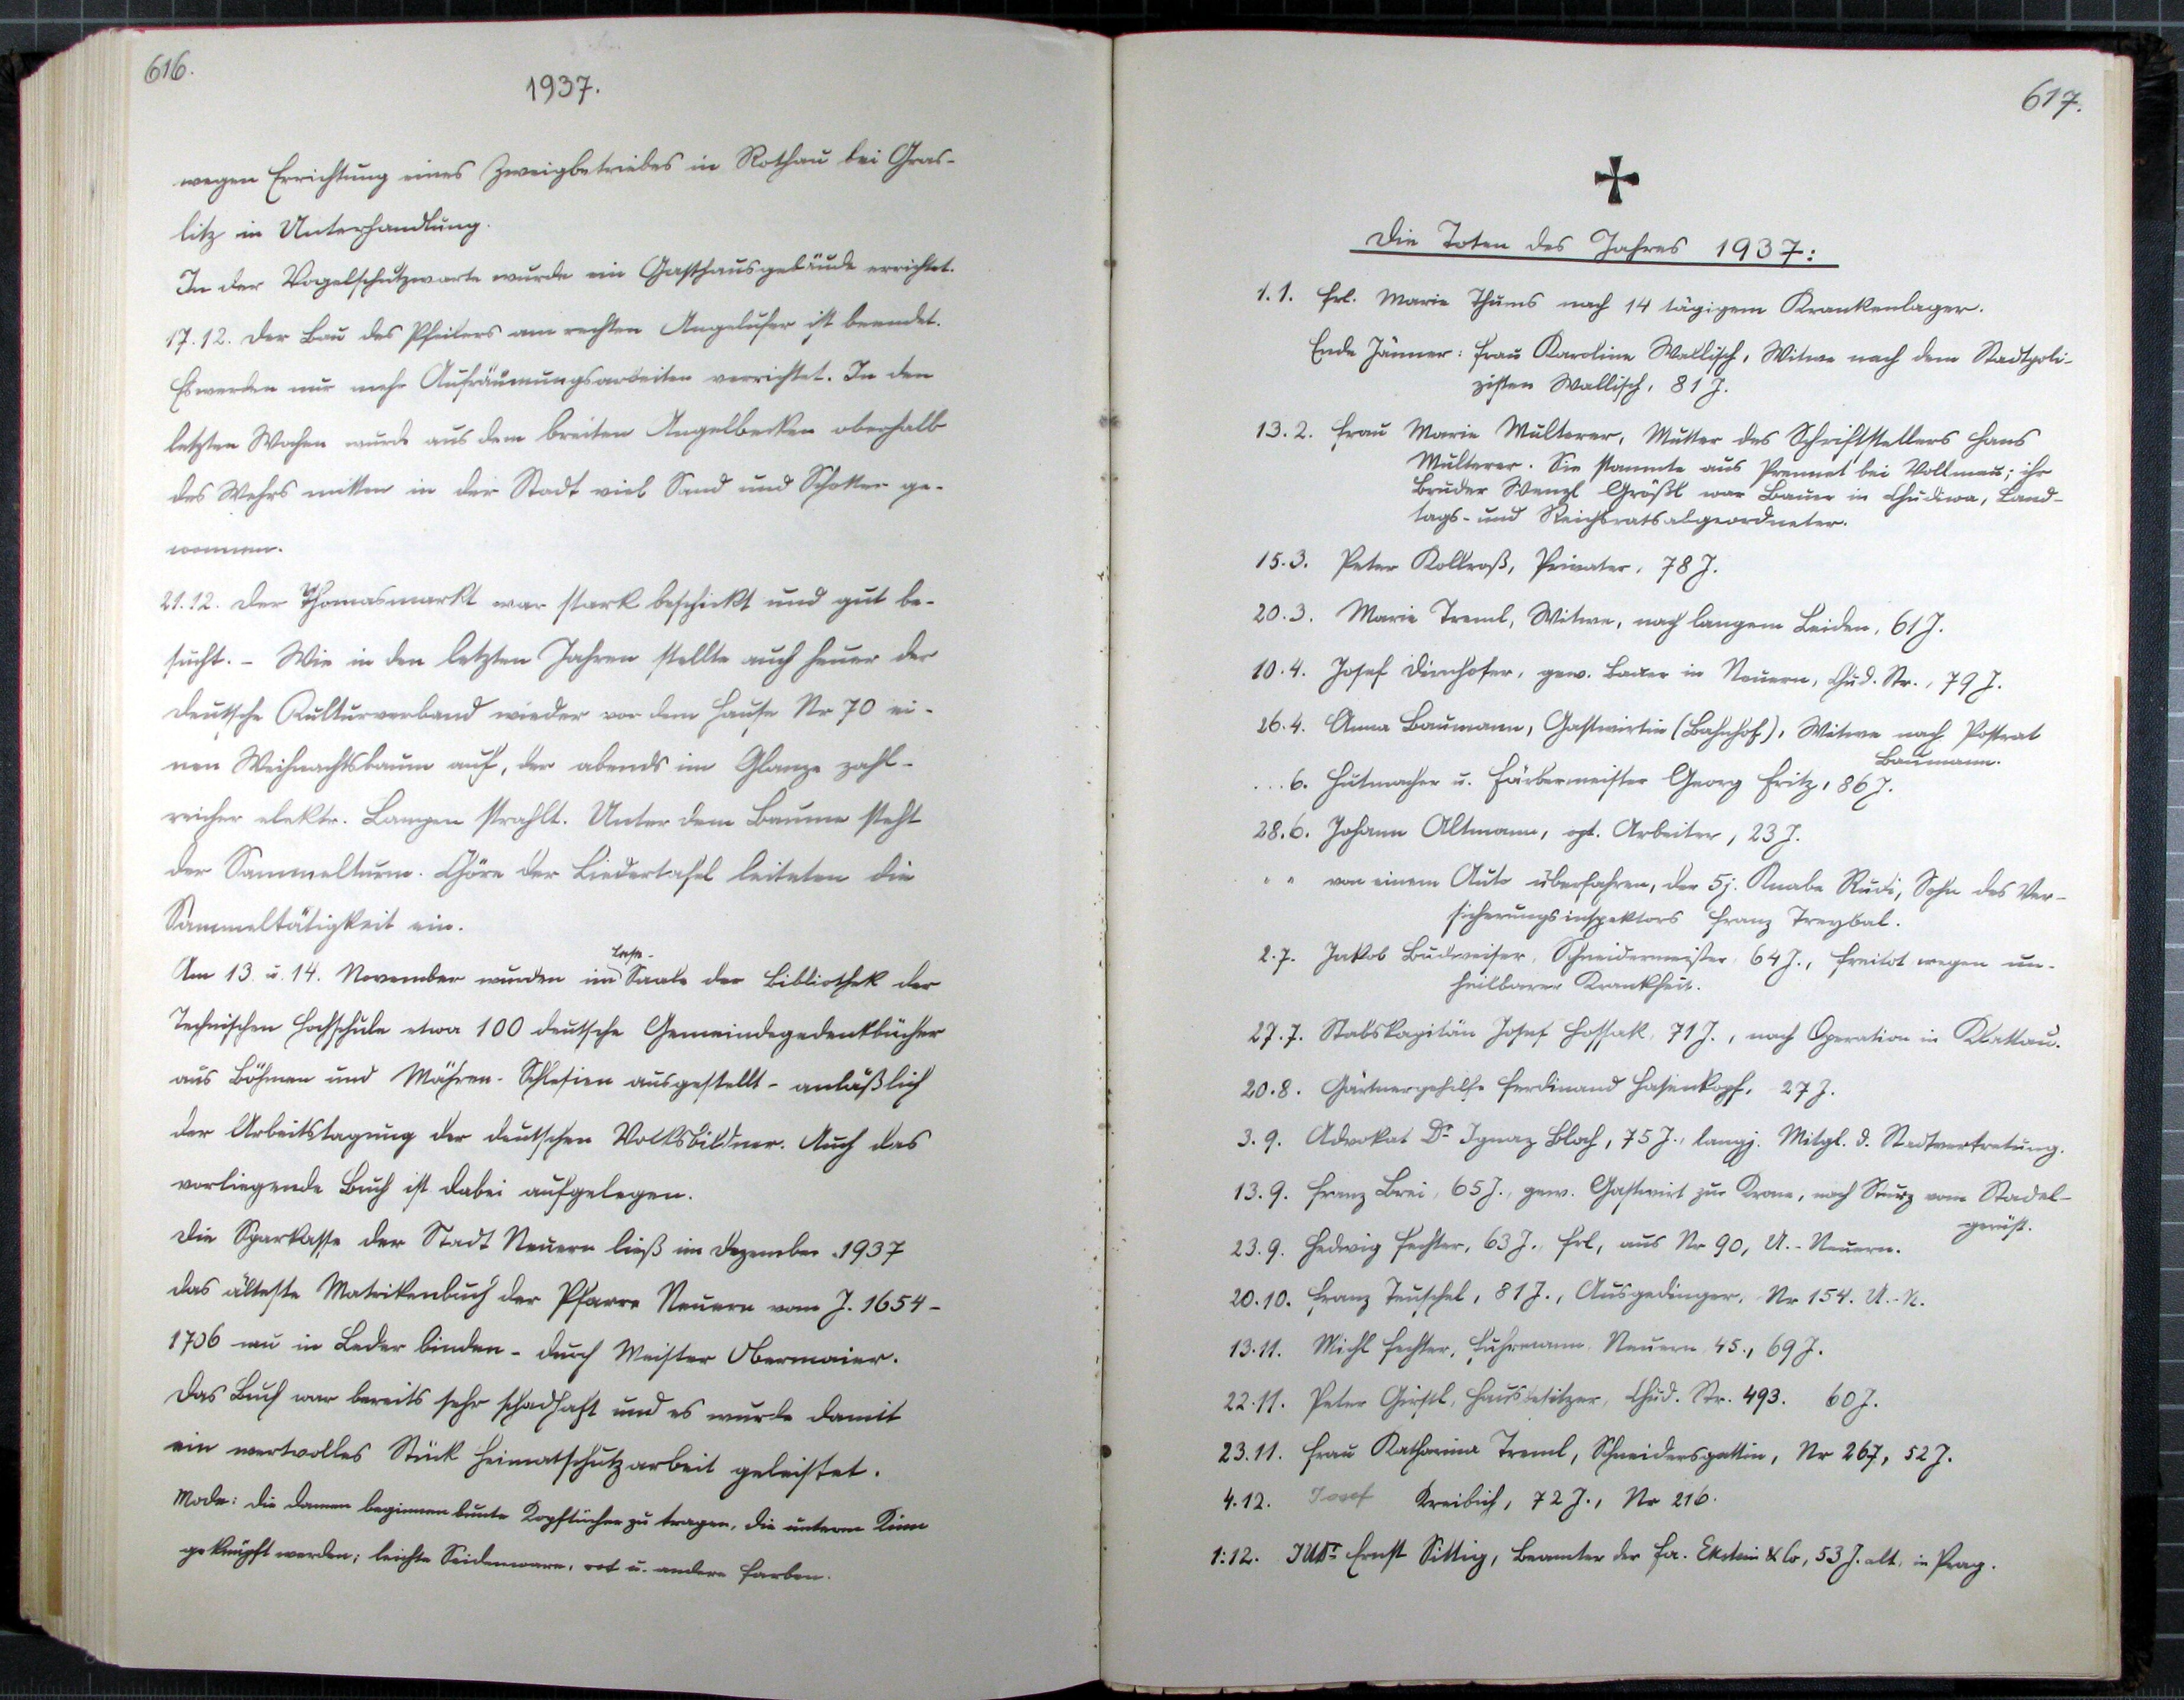 616.
1937.
wegen Errichtung eines Zweigbetriebes in Rothau bei Gras-
litz in Unterhandlung.
In der Vogelschutzwarte wurde ein Gasthausgebäude errichtet.
17.12. Der Bau des Pfeilers am rechten Angelufer ist beendet.
Es werden nur mehr Aufräumungsarbeiten verrichtet. In den
letzten Wochen wurde aus dem breiten Angelbecken oberhalb
des Wehrs mitten in der Stadt viel Sand und Schotter ge-
wonnen.
21.12. Der Thomasmarkt war stark beschickt und gut be-
sucht. - Wie in den letzten Jahren stellte auch heuer der
deutsche Kulturverband wieder vor dem Hause Nr 70 ei-
nen Weihnachtsbaum auf, der abends im Glanze zahl-
reicher elektr. Lampen strahlt. Unter dem Baume steht
der Sammelturm. Chöre der Liedertafel leiteten die
Sammeltätigkeit ein.
Am 13. u. 14. November wurden im Lese-Saale der Bibliothek der
Technischen Hochschule etwa 100 deutsche Gemeindegedenkbücher
aus Böhmen und Mähren-Schlesien ausgestellt - anläßlich
der Arbeitstagung der deutschen Volksbildner. Auch das
vorliegende Buch ist dabei aufgelegen.
Die Sparkasse der Stadt Neuern ließ im Dezember 1937
das älteste Matrikenbuch der Pfarre Neuern vom J. 1654-
1706 neu in Leder binden - durch Meister Obermaier.
Das Buch war bereits sehr schadhaft und es wurde damit
ein wertvolles Stück Heimatschutzarbeit geleistet.
Mode: Die Damen beginnen bunte Kopftücher zu tragen, die unterm Kinn
geknüpft werden; leichte Seidenware, rot u. andere Farben.
617.
Die Toten des Jahres 1937:
1.1. Frl. Marie Thums nach 14 tägigem Krankenlager.
Ende Jänner: Frau Karoline Wallisch, Witwe nach dem Stadtpoli-
zisten Wallisch, 81 J.
13.2. Frau Marie Multerer, Mutter des Schriftstellers Hans
Multerer. Sie stammte aus Prennet bei Vollmau; ihr
Bruder Wenzl Größl war Bauer in Chudiwa, Land-
tags- und Reichsratsabgeordneter.
15.3. Peter Kollroß, Privater, 78 J.
20.3. Marie Treml, Witwe, nach langem Leiden, 61 J.
10.4. Josef Dirnhofer, gew. Bauer in Neuern, Chud. Str., 79 J.
26.4. Anna Baumann, Gastwirtin (Bahnhof), Witwe nach Postrat
Baumann.
...6. Hutmacher u. Färbermeister Georg Fritz, 86 J.
28.6. Johann Altmann, opt. Arbeiter, 23 J.
" " von einem Auto überfahren, der 5j. Knabe Rudi, Sohn des Ver-
sicherungsinspektors Franz Treybal.
2.7. Jakob Budweiser, Schneidermeister, 64 J., Freitot wegen un-
heilbarer Krankheit.
27.7. Stabskapitän Josef Hossak, 71 J., nach Operation in Klattau.
20.8. Gärtnergehilfe Ferdinand Hasenkopf, 27 J.
3.9. Advokat Dr Ignaz Bloch, 75 J., langj. Mitgl. d. Stadtvertretung.
13.9. Franz Brei, 65 J., gew. Gastwirt zur Krone, nach Sturz vom Stadel-
gerüst.
23.9. Hedwig Fechter, 63 J., Frl, aus Nr 90, U.-Neuern.
20.10. Franz Teuschel, 81 J., Ausgedinger, Nr 154. U.-N.
13.11. Michl Fechter, Fuhrmann, Neuern 45., 69 J.
22.11. Peter Girstl, Hausbesitzer, Chud. Str. 493. 60 J.
23.11. Frau Katharina Treml, Schneidersgattin, Nr 267, 52 J.
4.12. Josef Kreibich, 72 J., Nr 216.
1.12. JUDr Ernst Sittig, Beamter der Fa. Ekstein & Co, 53 J. alt, in Prag.